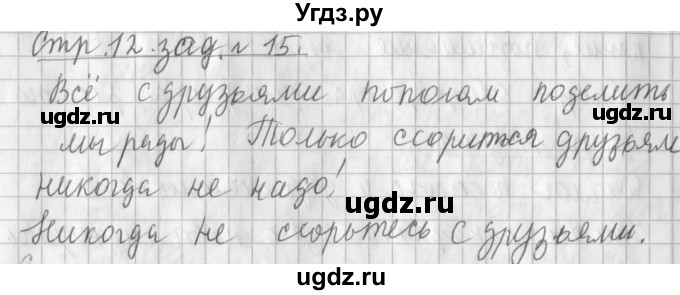 Угдз.ру
Стр. 12. зад. № 15.
Всё с друзьями пополам поделить
ugdz.ru ugdz.ru
мы рады! Только ссориться друзьям
никогда не надо!
ugdz.ru
Никогда не ссорьтесь с друзьями.
ugdz.ru ugdz.ru
ugdz.ru